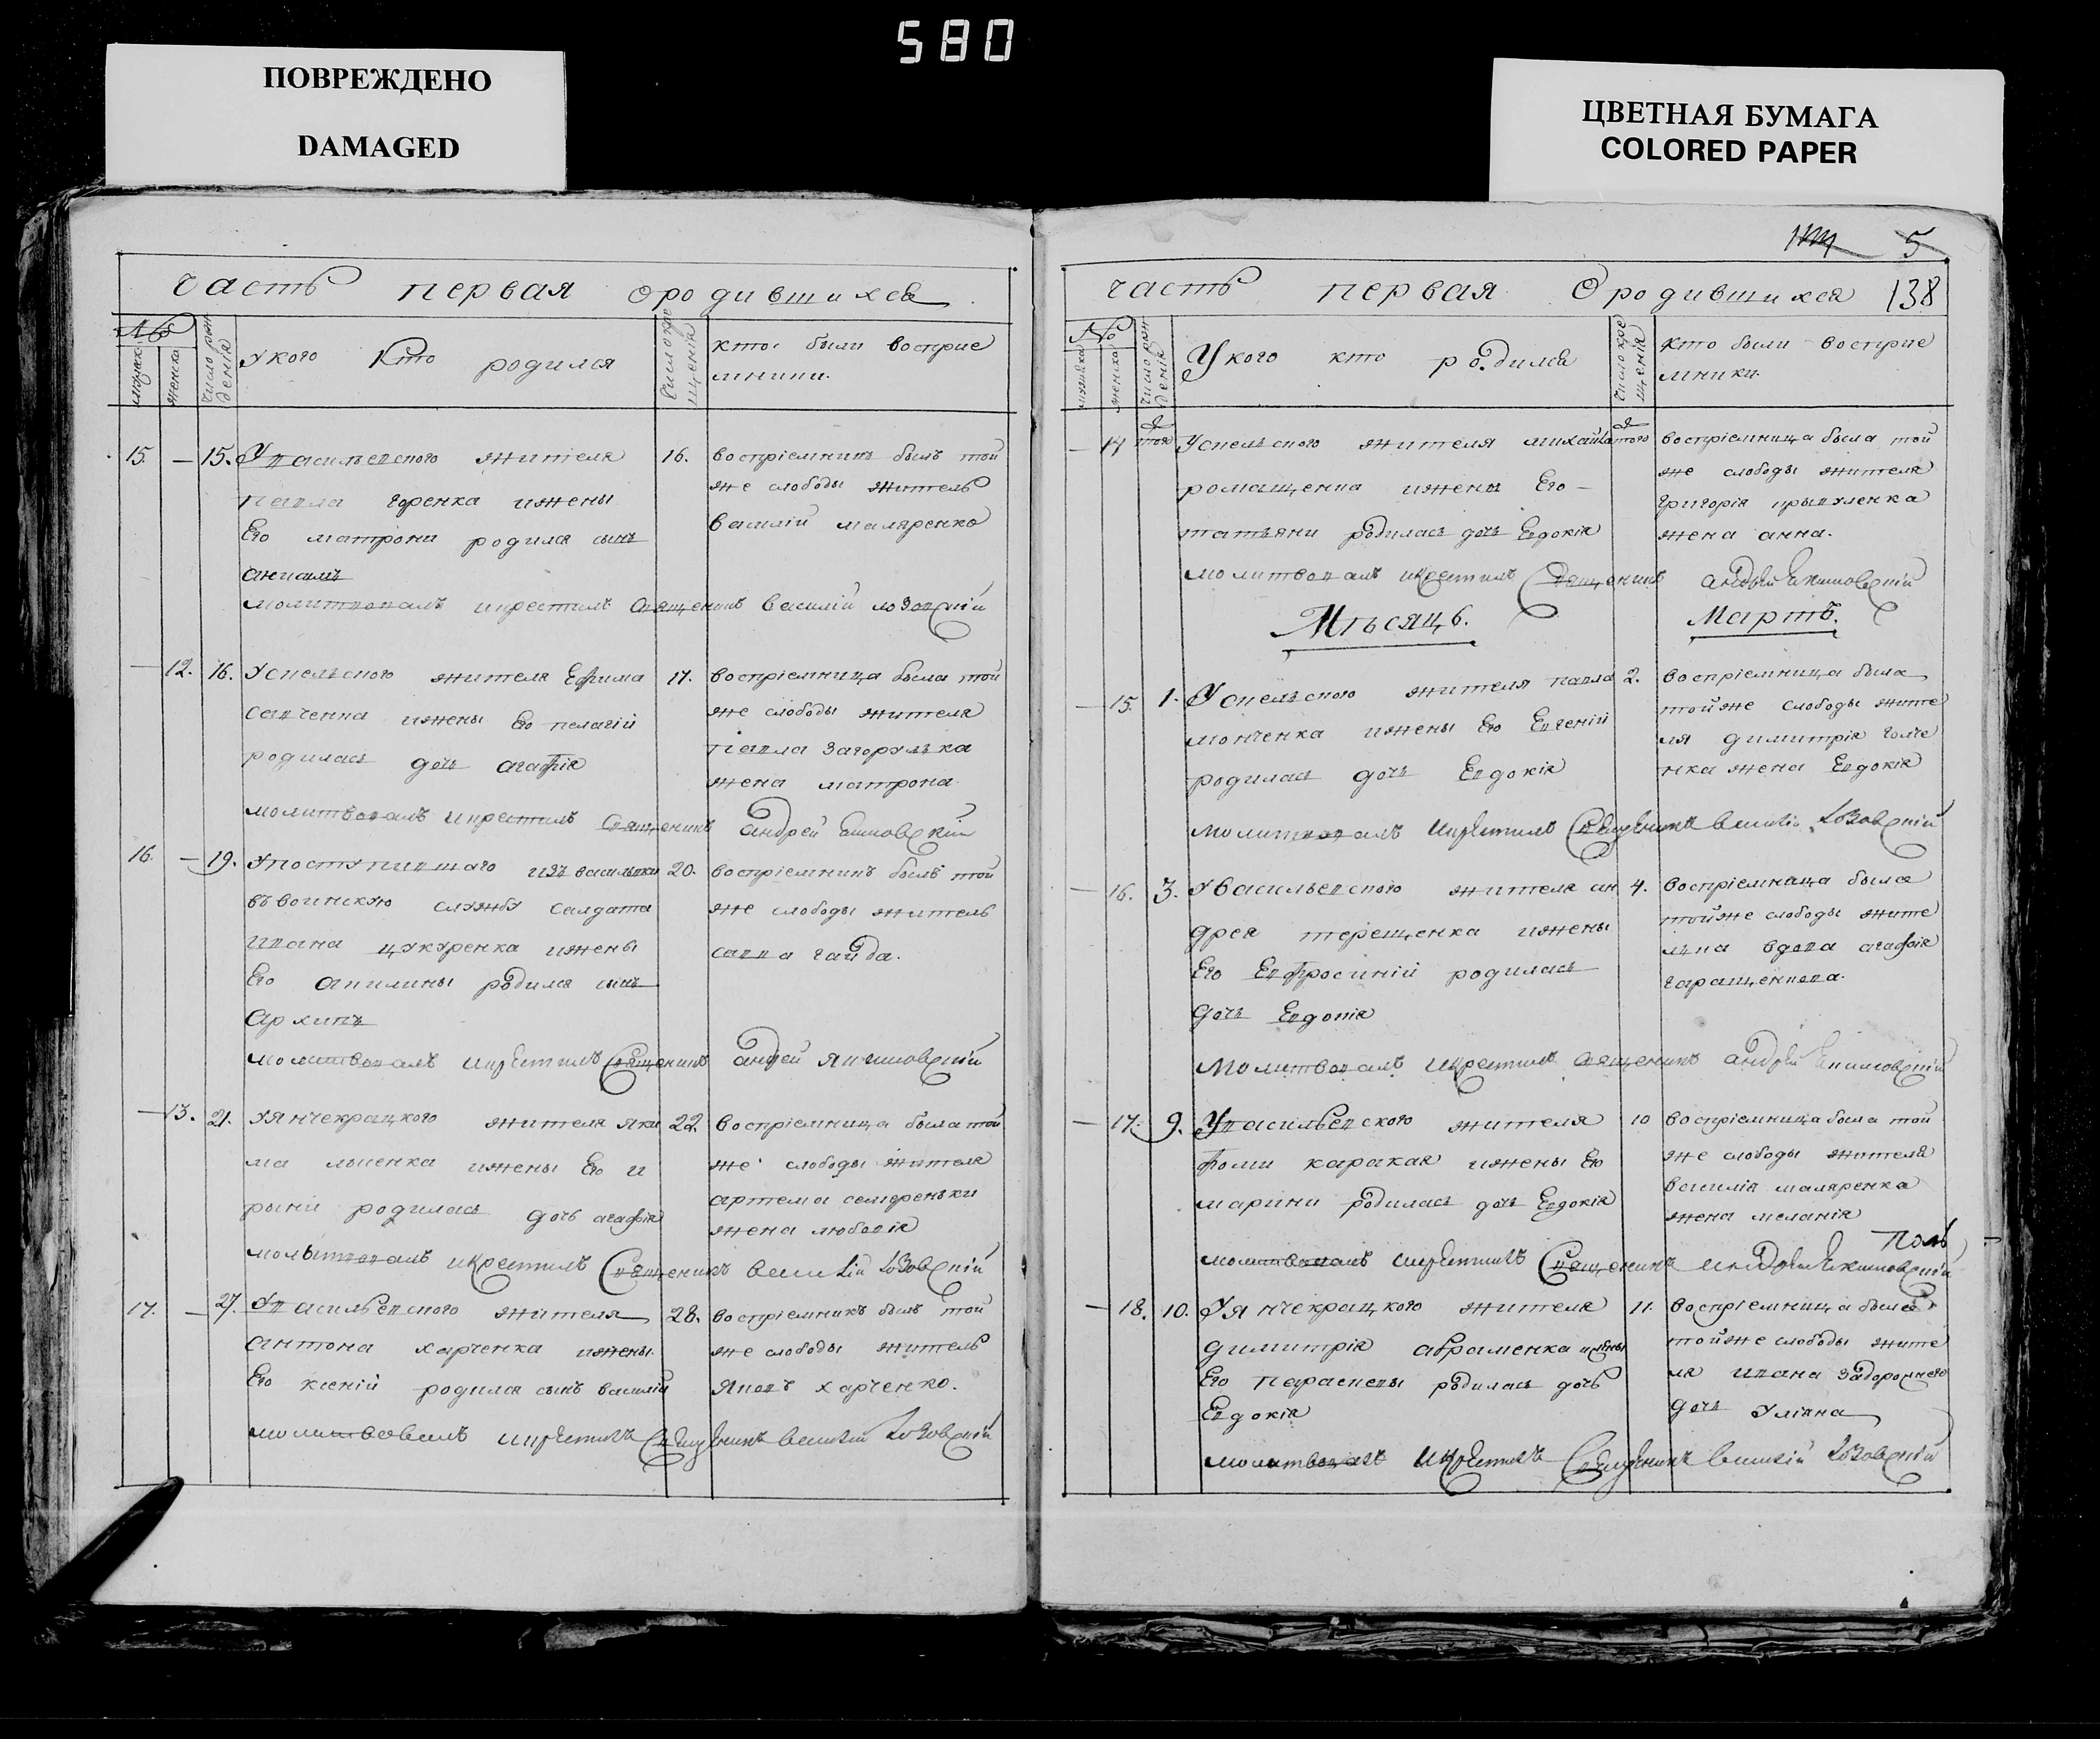 580
ПОВРЕЖДЕНО
DAMAGED
ЦВЕТНАЯ БУМАГА
COLORED PAPER
часть первая ородившихся
№
мужска
женска
число рож
денія
У кого Кто родился
число кре
щенія
кто были восприе
мники.
15. — 15. Увасильевского жителя 16.
павла горенка ижены
Его матрони родился сынъ
молитвовалъ икрестилъ священикъ василій лозовскій
воспріемникъ былъ той
же слободы житель
василій маляренко
— 12. 16. Успельского жителя Ефима 17.
савченка ижены Его пелагій
родилась дочь агафія
молитвовалъ икрестилъ священикъ андрей Екимовскій
воспріемница была той
же слободы жителя
павла загорулька
жена матрона
16. — 19. Упоступившаго изъ васильевки 20.
въвоинскую службу салдата
ивана цукуренка ижены
Его акилины родился сынъ
Архипъ
молитвовалъ икрестилъ Священикъ андрей Якимовскій
воспріемникъ былъ той
же слободы житель
савва гайда.
— 13. 21. Уянчекрацкого жителя яки 22.
ма льценка ижены Его и
рыни родилась дочь агафія
молитвовалъ икрестилъ Священикъ василій лозовскій
воспріемница была той
же слободы жителя
артема семереньки
жена любовія
17. — 27. Увасильевского жителя 28.
антона харченка ижены
Его ксеній родился сынъ василій
молитвовалъ икрестилъ Священикъ василій лозовскій
воспріемникъ былъ той
же слободы житель
Яковъ харченко.
5
138
часть первая Ородившихся
№
мужска
женска
число рож
денія
У кого кто родился
число кре
щенія
кто были восприе
мники.
— 14 того Успельского жителя михайла того
ромащенка ижены Его
татьяни родилась дочь Евдокія
молитвовалъ икрестилъ Священикъ андрей Екимовскій
воспріемница была той
же слободы жителя
григорія
жена анна.
Мѣсяцъ. Мартъ.
— 15. 1. Успельского жителя павла 2.
монченка ижены Его Евгеній
родилась дочь Евдокія
молитвовалъ икрестилъ Священикъ василій лозовскій
воспріемница была
тойже слободы жите
ля димитрія голче
нка жена Евдокія
— 16. 3. Увасильевского жителя ан 4.
дрея терещенка ижены
Его Евфросиній родилась
дочь Евдокія
молитвовалъ икрестилъ священикъ андрей Екимовскій
воспріемница была
тойже слободы жите
лька вдова агафія
гаращенкова.
— 17. 9. Увасильевского жителя 10
фоми каракая ижены Его
марини родилась дочь Евдокія
молитвовалъ икрестилъ Священикъ андрей Екимовскій
воспріемница была той
же слободы жителя
василія маляренка
жена меланія
— 18. 10. Уянчекрацкого жителя 11.
димитрія авраменка ижены
Его параскевы родилась дочь
Евдокія
молитвовалъ икрестилъ Священикъ василій лозовскій
воспріемница была
тойже слободы жите
ля ивана задорожнего
дочь Уліяна